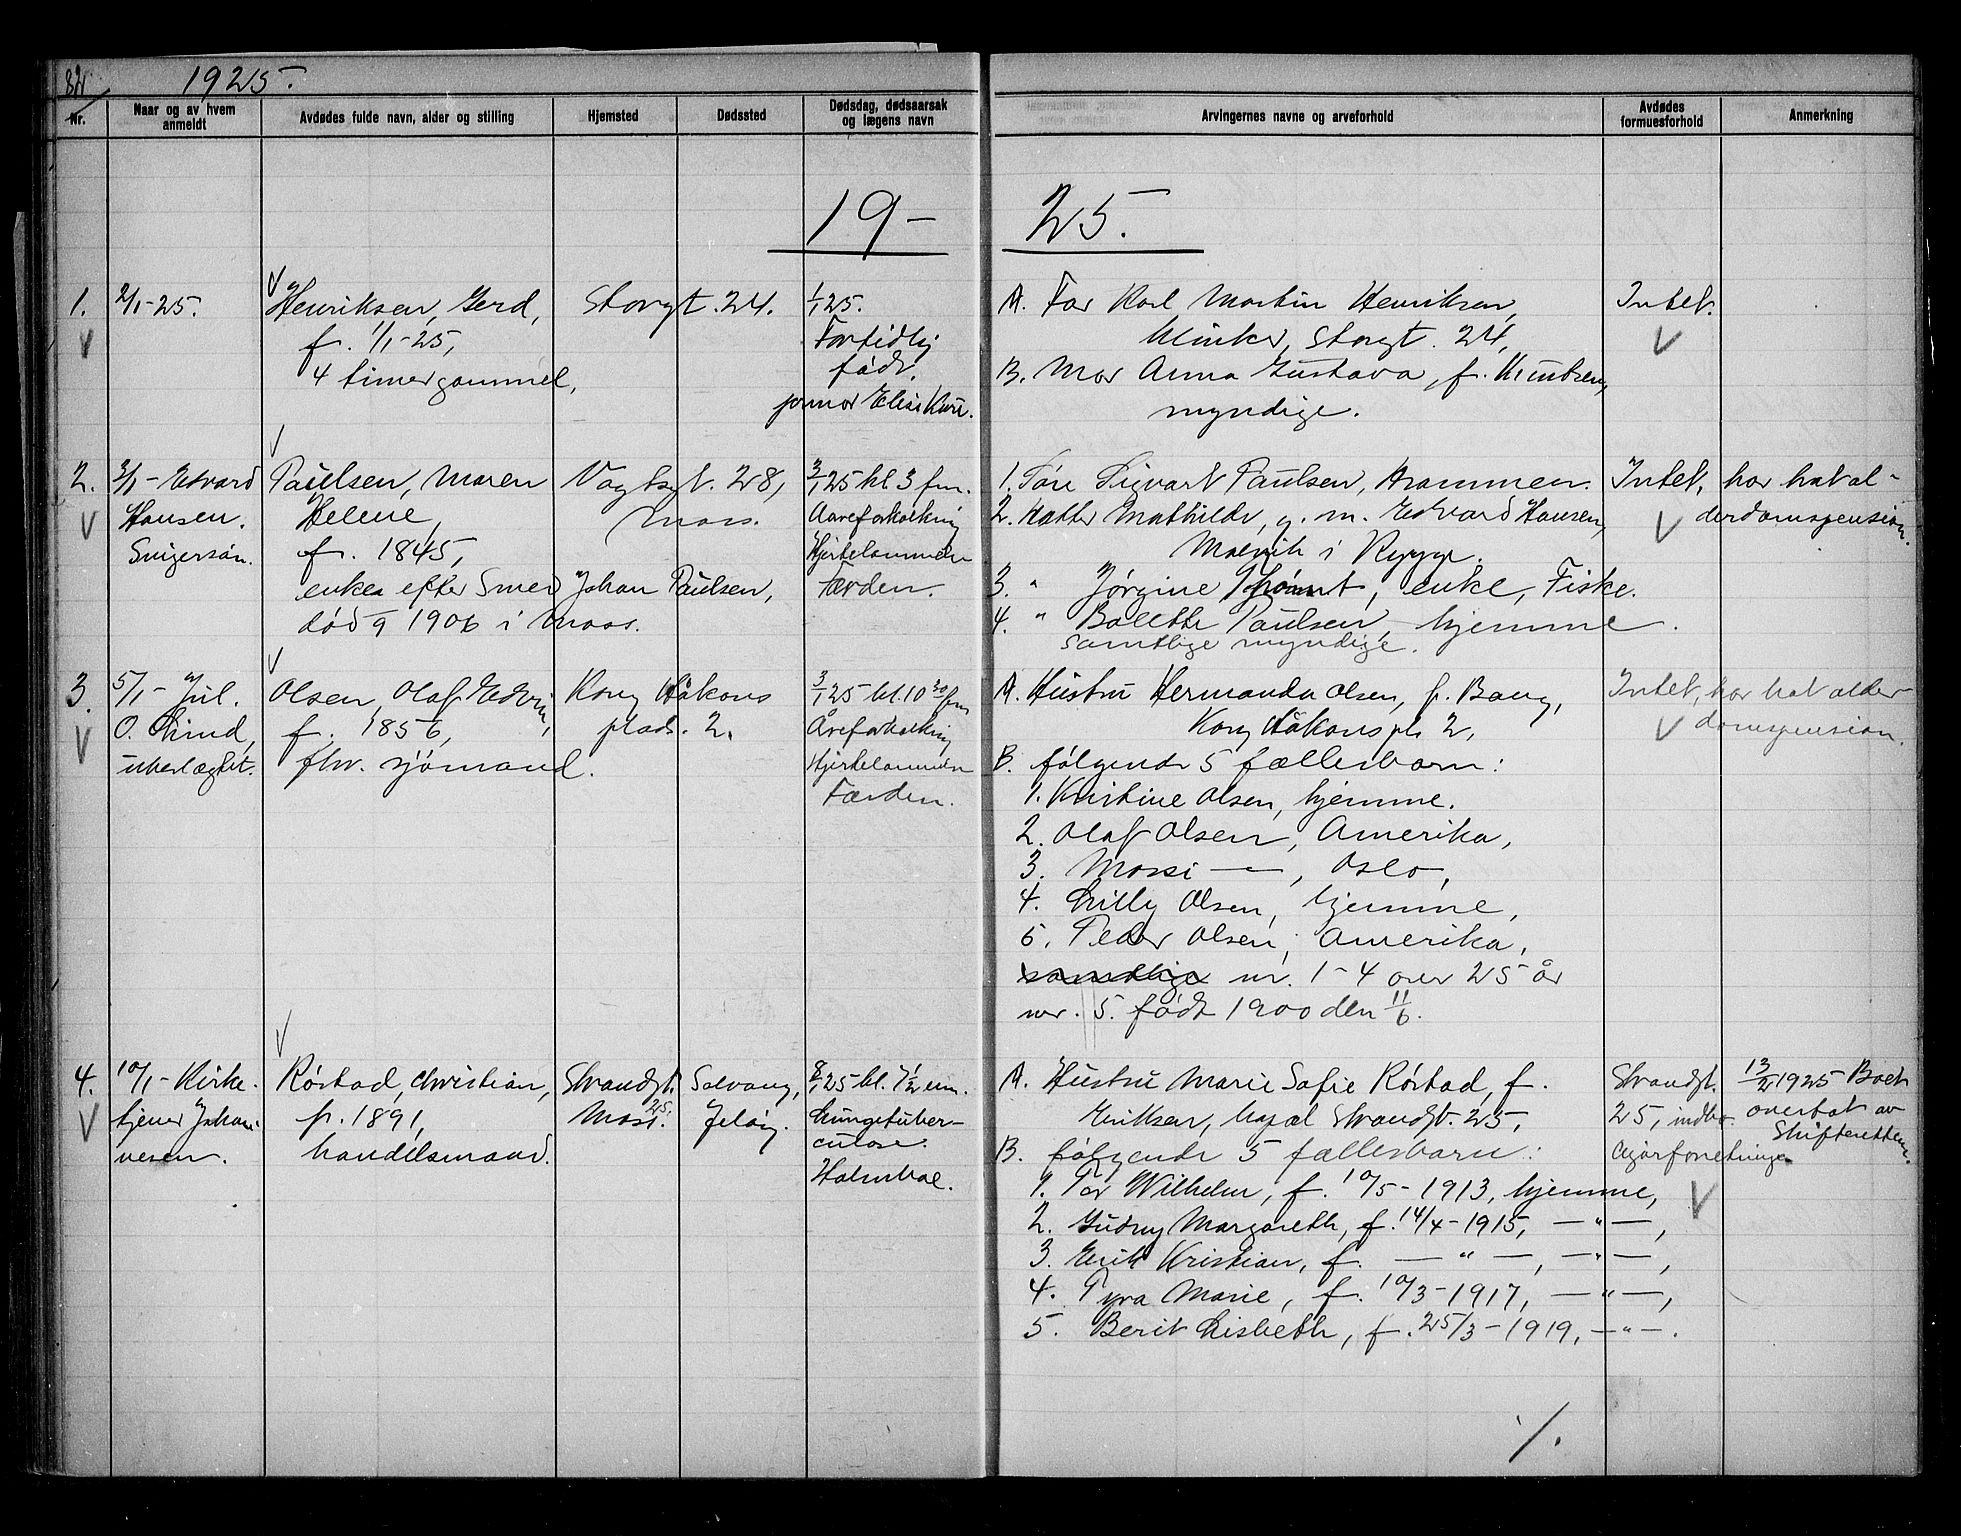 82
1925.
Nr.
Naar og av hvem anmeldt
Avdødes fulde navn, alder og stilling
Hjemsted
Dødssted
Dødsdag, dødsaarsak og lægens navn
Arvingernes navne og arveforhold
Avdødes formuesforhold
Anmerkning
19-
25.
1.
2/1-25.
Henriksen, Gerd,
f. 1/1-25,
4 timer gammel,
Storgt. 24.
1/1 25.
Fortidlig
født.
jormor Elise
A. Far Karl Martin Henriksen,
Storgt. 24,
B. Mor Anna Gustava, f. Knutsen,
myndige.
Intet.
2.
3/1- Edvard
Hansen.
Svigersøn.
Paulsen, Maren
Helene,
f. 1845,
enke efter Smed Johan Paulsen,
død 1906 i Moss.
Vogtsgt. 28,
Moss.
3/1 25 kl. 3 fm.
Aareforkalkning
Hjertelammelse
Færden.
1. Søn Sigvart Paulsen, Drammen.
2. Datter Mathilde, g. m. Edvard Hansen,
i Rygge.
3. " Jørgine, enke, Fiske.
4. " Bolette Paulsen, hjemme.
samtlige myndige.
Intet, har hat al-
derdomspension.
3.
5/1- Jul.
O. Lund,
ubeslægtet.
Olsen, Olaf Edvin,
f. 1856,
fhv. sjömand.
Kong Håkons
plads. 2.
3/1 25 kl. 10 30 fm
Åreforkalkning
Hjertelammelse
Færden.
A. Hustru Hermanda Olsen, f. Bang,
Kong Håkons pl. 2,
B. følgende 5 fællesbarn:
1. Kristine Olsen, hjemme.
2. Olaf Olsen, Amerika,
3. Mossi —, Oslo,
4. Lilly Olsen, hjemme,
5. Peder Olsen, Amerika,
samtlige nr. 1-4 over 25 år
nr. 5. født 1900 den 11/6.
Intet, har hat alder-
domspension.
4.
10/1- Kirke-
tjener Johan-
nesen.
Röstad, Christian,
f. 1891,
handelsmand.
Strandgt. 25.
Moss.
Solvang,
Jelöy.
8/1 25 kl. 7 1/2 em.
Lungetuber-
culose.
Holmboe.
A. Hustru Marie Sofie Röstad, f.
Eriksen, Strandgt. 25,
B. følgende 5 fællesbarn:
1. Tor Wilhelm, f. 10/5-1913, hjemme,
2. Gudny Margareth, f. 14/4-1915, —"—,
3. Erik Kristian, f. —"—, —"—,
4. Tyra Marie, f. 10/3-1917, —"—,
5. Berit Lisbeth, f. 25/3-1919, —"—.
Strandgt.
25, indbo.
Cigarforretning.
13/2 1925 Boet
overtat av
Skifteretten.
./.